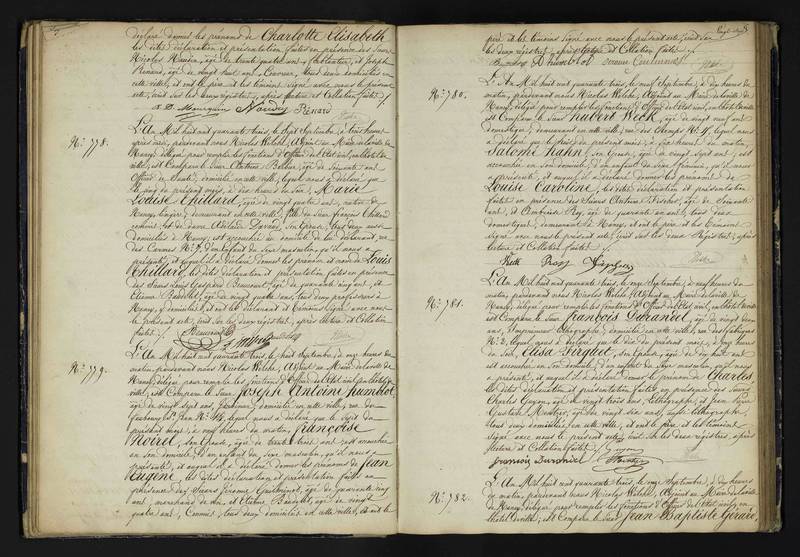 déclare donner les prénoms de Charlotte Elisabeth
les dites déclaration et présentation faites en présence des Sieurs
Nicolas âgé de trente quatre ans, et Joseph
Renard, âgé de vingt huit ans, tous deux domiciliés en
cette ville, et ont le père et les témoins signé avec nous le présent
acte, écrit sur les deux registres, après lecture et Collation faites
Renard
N.° 778.
L'An Mil huit cent quarante trois, le Sept Septembre, à trois heures
après midi, pardevant nous Nicolas Welche, Adjoint au Maire de la ville de
Nancy, délégué pour remplir les fonctions d'Officier de l'Etat civil, en l'hôtel de
ville, est Comparu le Sieur âgé de soixante ans
Officier de Santé, domicilié en cette ville, lequel nous a déclaré que
le cinq du présent mois, à dix heures du soir, Marie
Louise Thillard, âgée de vingt quatre ans, native de
Nancy, demeurant en cette ville, fille du Sieur françois Thillard
et de dame son Epouse, tous deux
domiciliés à Nancy, est accouchée au domicile de lui déclarant, rue
des Carmes N.° d'un enfant du Sexe masculin, qu'il nous a
présenté, et auquel il a déclaré donner les prénom et nom de Louis
Thillard, les dites déclaration et présentation faites en présence
des Sieurs Louis Gaspard âgé de quarante cinq ans, et
Etienne âgé de vingt quatre ans, tous deux professeurs à
Nancy, y domiciliés, et ont le déclarant et témoins signé avec nous
le présent acte, écrit sur les deux registres, après lecture et Collation
faites
N.° 779.
L'An Mil huit cent quarante trois, le huit Septembre, à onze heures du
matin, pardevant nous Nicolas Welche, Adjoint au Maire de la ville
de Nancy, délégué pour remplir les fonctions d'Officier de l'Etat civil, en l'hôtel de
ville, est Comparu le Sieur Joseph Antoine humblot,
âgé de vingt sept ans, domicilié en cette ville, rue du
faubourg S.t Jean N.° lequel nous a déclaré que le Sept du
présent mois, à neuf heures du matin, françoise
Noirel, son Epouse, âgée de trente trois ans est accouchée
en son domicile, d'un enfant du Sexe masculin, qu'il nous a
présenté, et auquel il a déclaré donner les prénoms de Jean
Eugène, les dites déclaration et présentation faites en
présence des Sieurs Jerome âgé de quarante cinq
ans, marchand de vin, et Etienne âgé de vingt
quatre ans, Commis, tous deux domiciliés en cette ville, et ont le
père et les témoins signé avec nous le présent acte, écrit sur
les deux registres, après lecture et Collation faites
humblot
N.° 780.
L'An Mil huit cent quarante trois, le neuf Septembre, à dix heures du
matin, pardevant nous Nicolas Welche, Adjoint au Maire de la ville de
Nancy, délégué pour remplir les fonctions d'Officier de l'Etat civil, en l'hôtel de ville
est Comparu le Sieur hubert Weck, âgé de vingt neuf ans
domestique, demeurant en cette ville, rue des Champs N.° 4, lequel nous
a déclaré que le huit du présent mois, à six heures du matin,
Salomé Kahn, son Epouse, âgée de vingt sept ans, est
accouchée en son domicile, d'un enfant du Sexe féminin, qu'il nous
a présenté, et auquel il a déclaré donner les prénoms de
Louise Caroline, les dites déclaration et présentation
faites en présence des Sieurs Antoine Fischer, âgé de soixante
ans, et Ambroise Roy, âgé de quarante un ans, tous deux
domestiques, demeurant à Nancy, et ont le père et les témoins
signé avec nous le présent acte, écrit sur les deux registres, après
lecture et Collation faites
Wekk Roy
N.° 781.
L'An Mil huit cent quarante trois, le onze Septembre, à neuf heures du
matin, pardevant nous Nicolas Welche, Adjoint au Maire de la ville de
Nancy, délégué pour remplir les fonctions d'Officier de l'Etat civil, en l'hôtel de ville
est Comparu le Sieur françois Durandet, âgé de vingt deux
ans, Imprimeur lithographe, domicilié en cette ville, rue des fabriques
N.° 2, lequel nous a déclaré que le dix du présent mois, à onze heures
du Soir, Elisa Ferquel, son Epouse, âgée de dix huit ans
est accouchée en son domicile, d'un enfant du Sexe masculin, qu'il nous
a présenté, et auquel il a déclaré donner le prénom de Charles
les dites déclaration et présentation faites en présence des Sieurs
Charles Guyon, âgé de vingt trois ans, lithographe, et Jean Pierre
Gustave âgé de vingt six ans, aussi lithographe,
tous deux domiciliés en cette ville, et ont le père et les témoins
signé avec nous le présent acte, écrit sur les deux registres, après
lecture et Collation faites
francois Durandet Guyon
N.° 782.
L'An Mil huit cent quarante trois, le onze Septembre, à dix heures
du matin, pardevant nous Nicolas Welche, Adjoint au Maire de la ville
de Nancy, délégué pour remplir les fonctions d'Officier de l'Etat civil, en
l'hôtel de ville, est Comparu le Sieur Jean Baptiste Gérard,